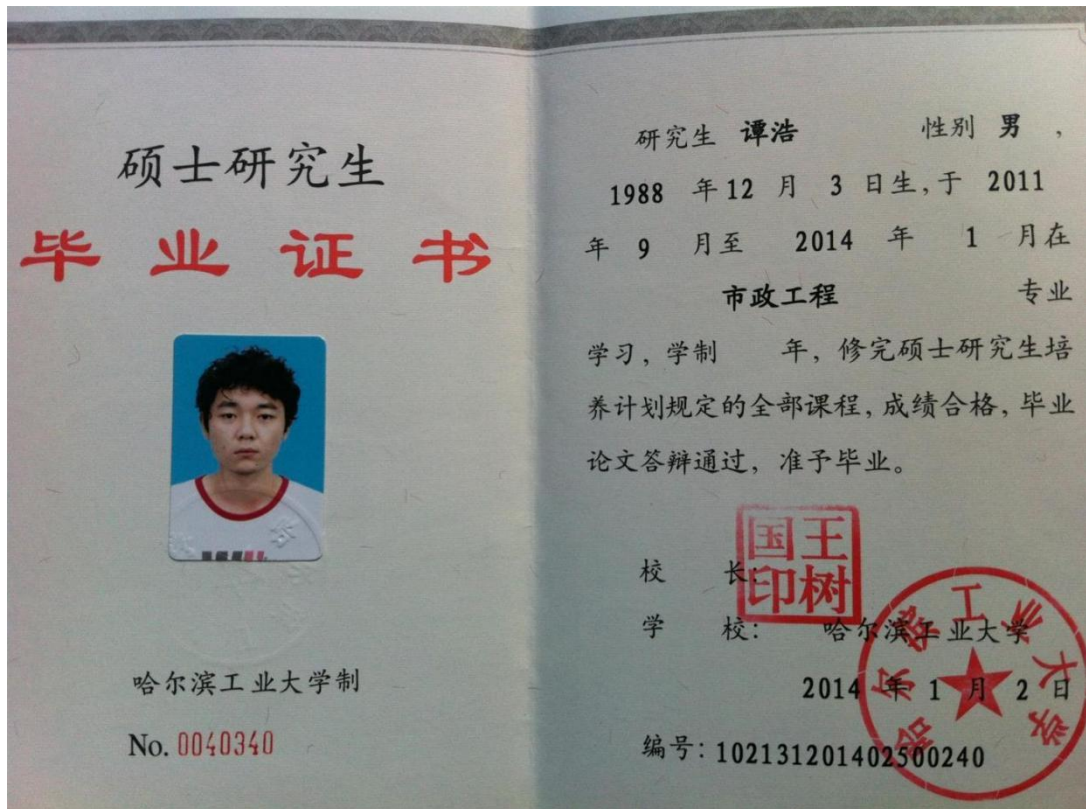 硕士研究生
毕业证书
哈尔滨工业大学制
No. 0040340
研究生 谭浩 性别 男 ,
1988 年 12 月 3 日生,于 2011
年 9 月至 2014 年 1 月在
市政工程 专业
学习,学制 年,修完硕士研究生培
养计划规定的全部课程,成绩合格,毕业
论文答辩通过,准予毕业。
校 长:
王树国印
学 校: 哈尔滨工业大学
哈尔滨工业大学
2014 年 1 月 2 日
编号:102131201402500240